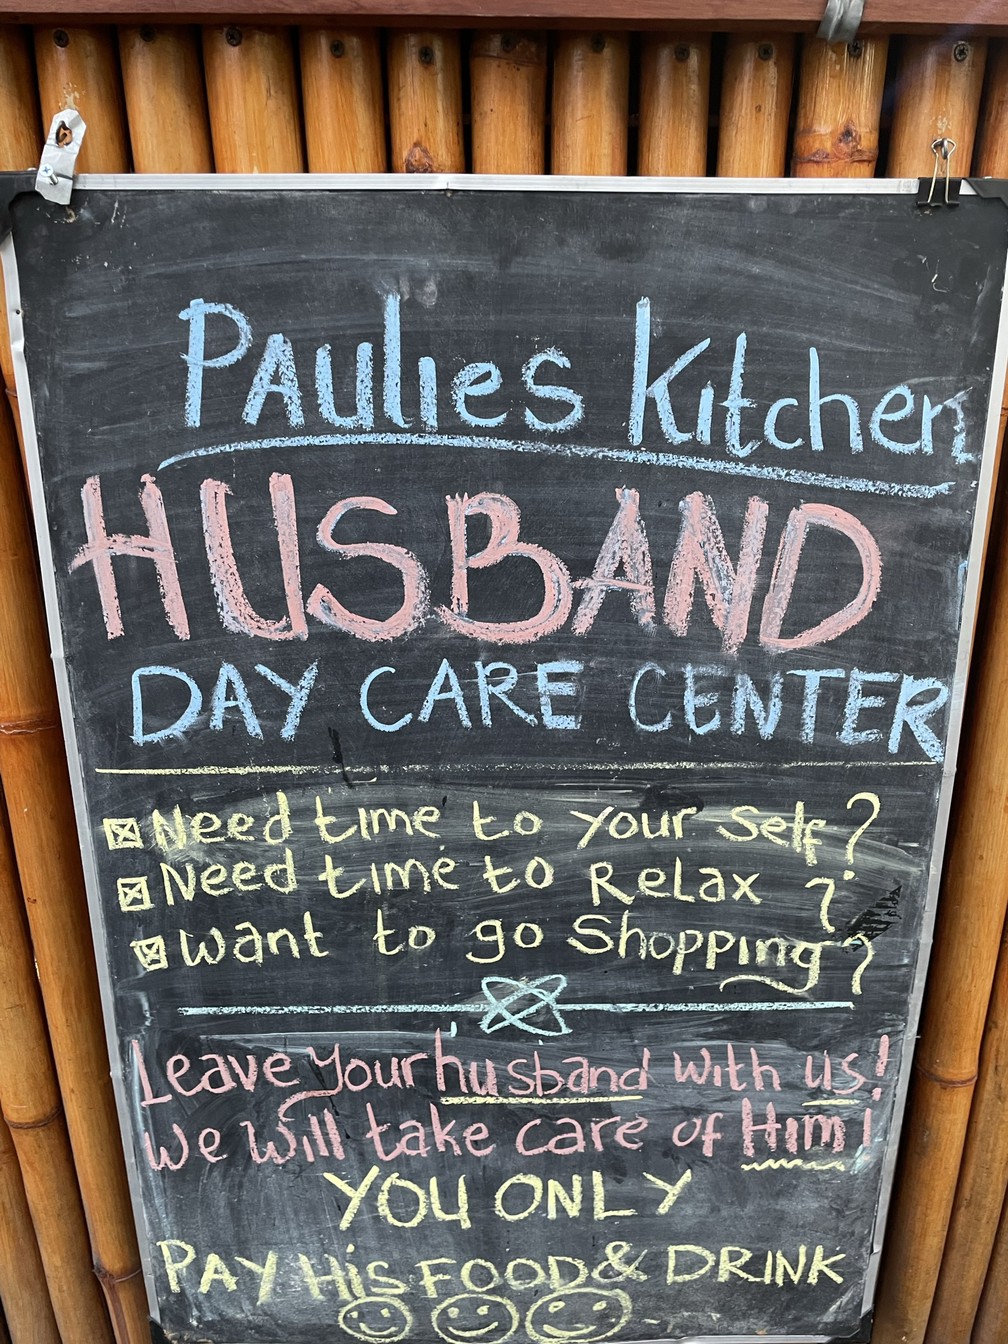 PAulies Kitchen
HUSBAND
DAY CARE CENTER
Need time to your Self?
Need time to ReLax ?
want to go Shopping?
Leave your husband with us!
We will take care of Him!
YOU ONLY
PAY HiS FOOD & DRINK